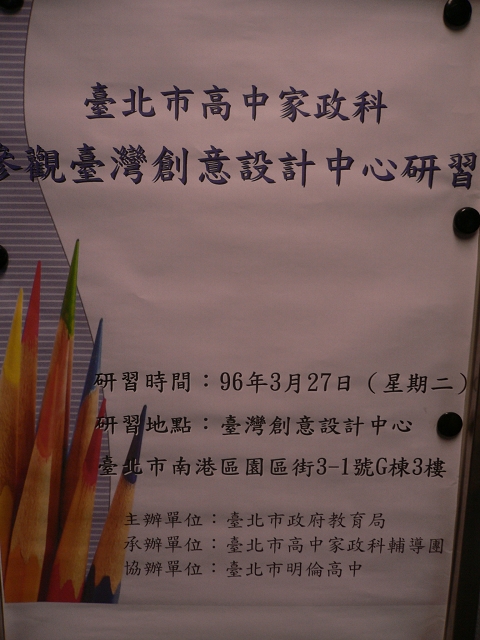 臺北市高中家政科
參觀臺灣創意設計中心研習
研習時間：96年3月27日（星期二）
研習地點：臺灣創意設計中心
臺北市南港區園區街3-1號G棟3樓
主辦單位：臺北市政府教育局
承辦單位：臺北市高中家政科輔導團
協辦單位：臺北市明倫高中